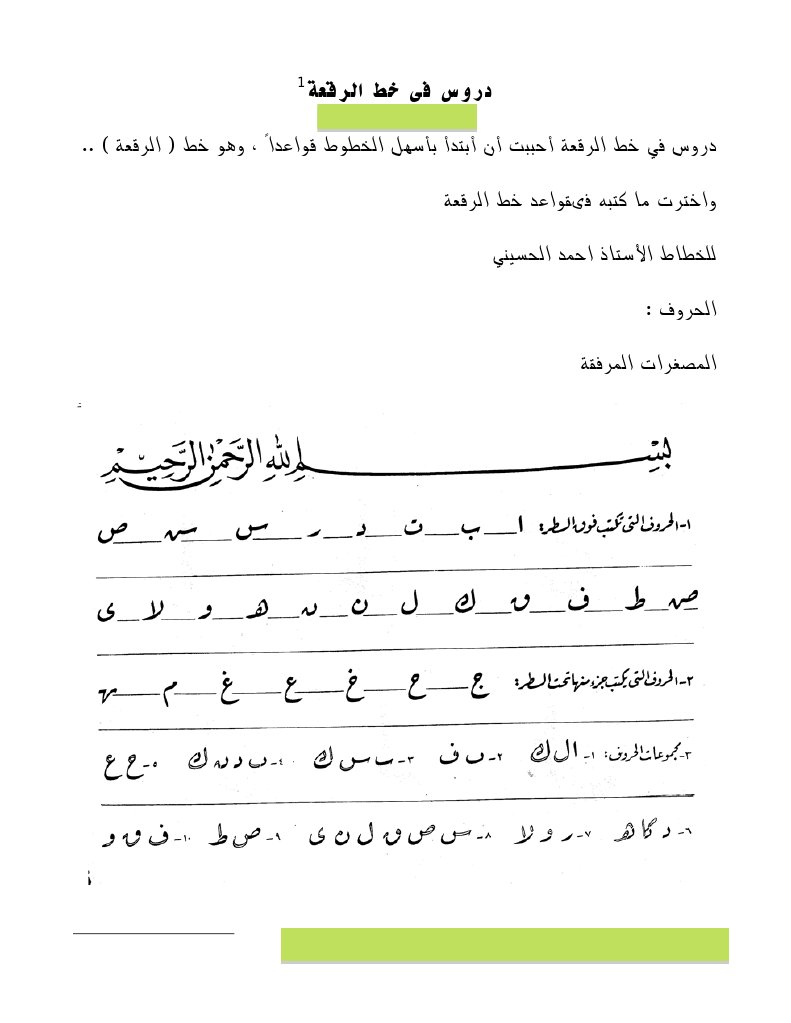 دروس فى خط الرقعة1
دروس في خط الرقعة أحببت أن أبتدأ بأسهل الخطوط قواعداً ، وهو خط ( الرقعة ) ..
واخترت ما كتبه فىقواعد خط الرقعة
للخطاط الأستاذ احمد الحسيني
الحروف :
المصغرات المرفقة
بسم الله الرحمن الرحيم
١- الحروف التى تكتب فوق السطر: ا ب ت د ر س س ص
ص ط ف ق ك ل ن ن ه و لا ى
٢- الحروف التى يكتب جزء منها تحت السطر: ج ح خ ع غ م ه
٣- مجموعات الحروف: ١- ا ل ك ٢- ب ف ٣- ب س ك ٤- ب د ن ك ٥- ح ع
٦- د ك ه ٧- ر و لا ٨- س ص ق ل ن ى ٩- ص ط ١٠- ف ق و